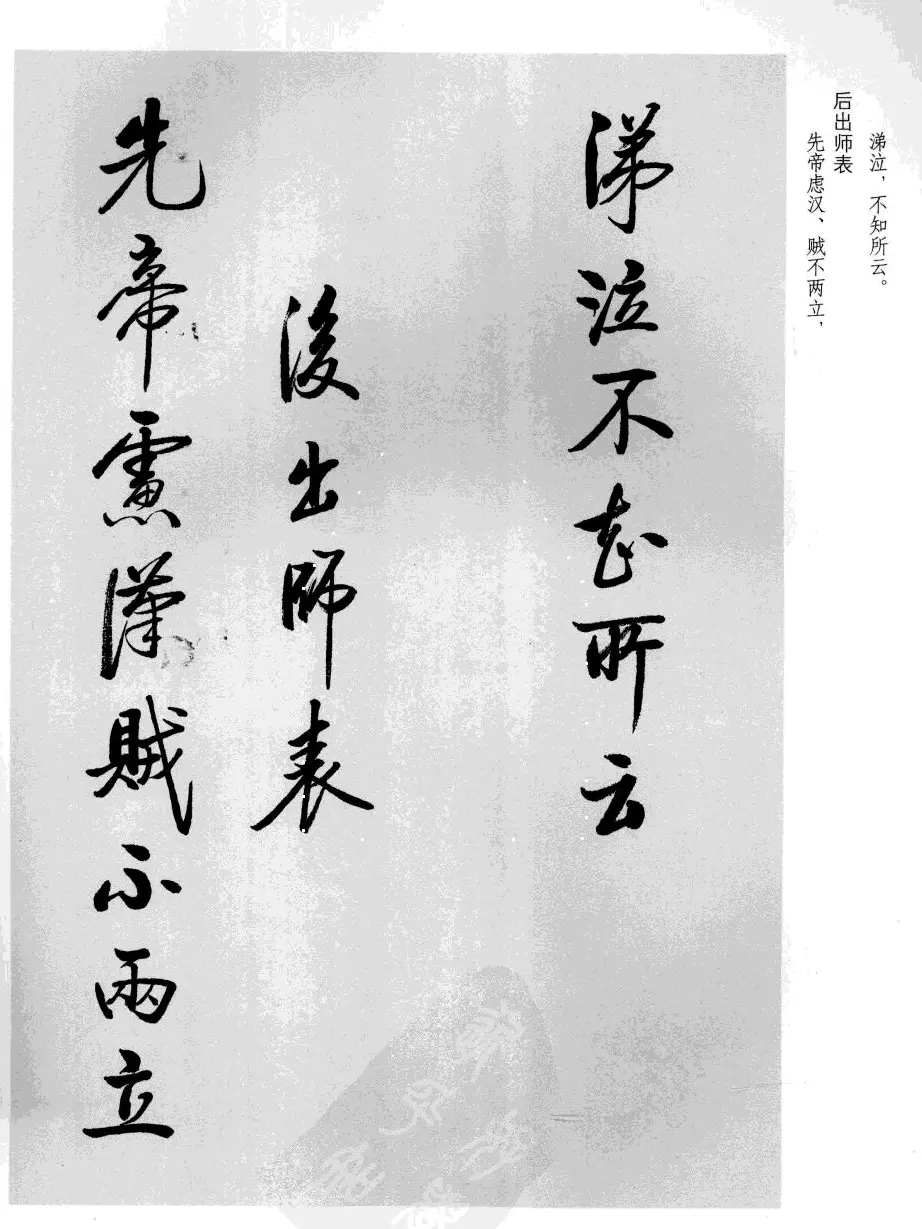 涕泣，不知所云。
后出师表
先帝虑汉、贼不两立，
涕泣不知所云
後出師表
先帝慮漢賊不兩立